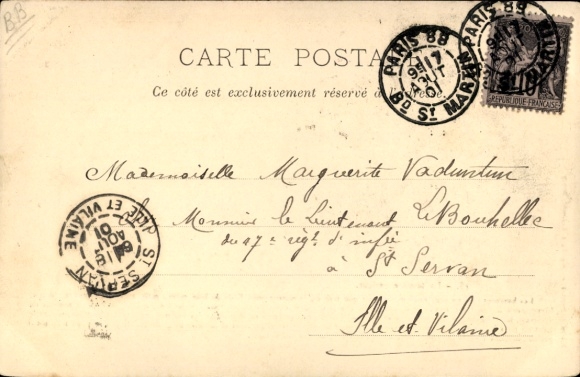 BB
CARTE POSTA
Ce côté est exclusivement réservé à l'adresse.
PARIS 88
17
AOUT
01
Bd St MARTIN
PARIS 88
Bd St MARTIN
10
REPUBLIQUE FRANÇAISE
Mademoiselle Marguerite
Chez Monsieur le Lieutenant Le Bouhellec
du 47e régt d'infie
à St Servan
Ille et Vilaine
St SERVAN
18
AOUT
01
ILLE ET VILAINE